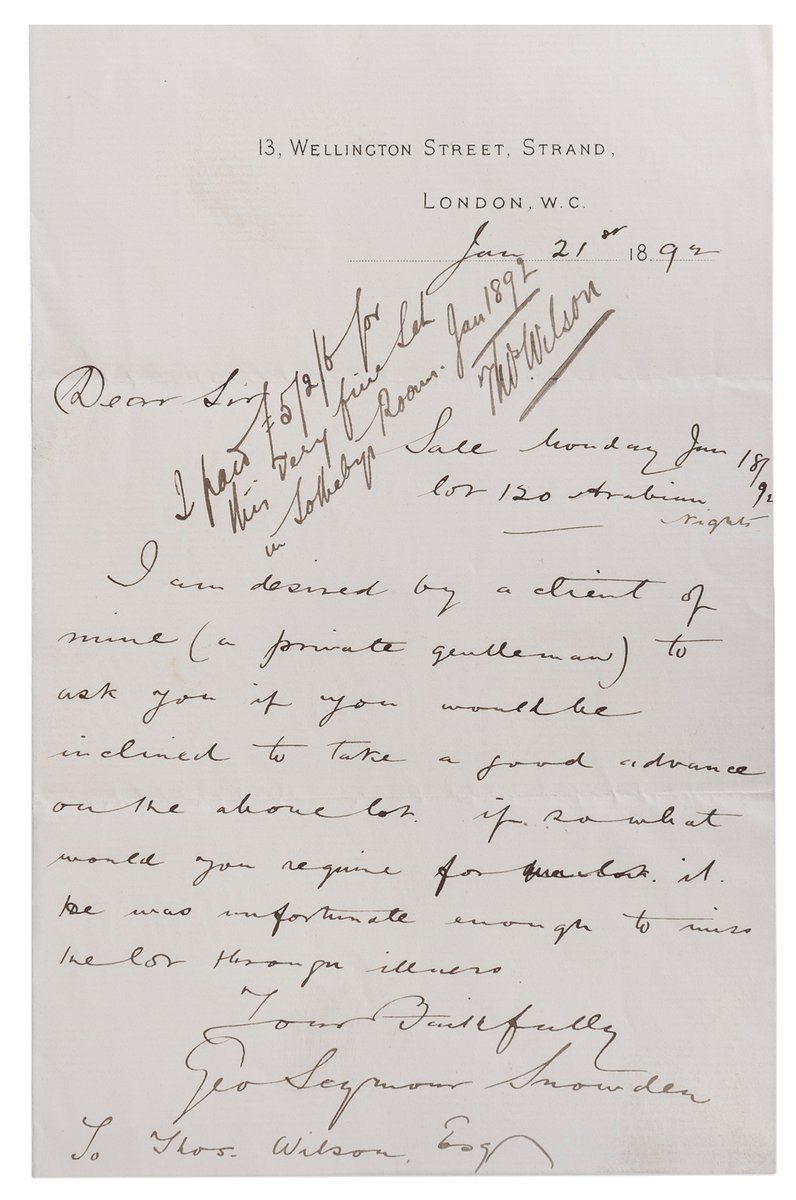 13, WELLINGTON STREET, STRAND,
LONDON, W.C.
Jan 21st 1892
I paid £5/2/6 for
this very fine Set
in Sothebys Rooms. Jan 1892
Thos. Wilson
Dear Sir
Sale Monday Jan 18/92
lot 120 Arabian
Nights
I am desired by a client of
mine (a private gentleman) to
ask you if you would be
inclined to take a good advance
on the above lot. if so what
would you require for it.
He was unfortunate enough to miss
the lot through illness
Yours Faithfully
Geo Seymour Snowden
To Thos. Wilson, Esq